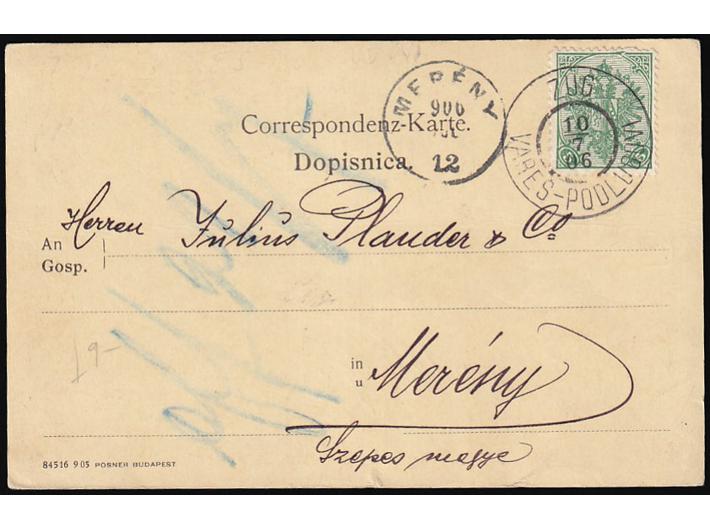 MERÉNY
906
12
ZUG
10
7
06
VAREŠ-PODLU
Correspondenz-Karte.
Dopisnica.
Herren Julius Plander & Co
An
Gosp.
in
u
Merény
Szepes megye
9-
84516 905 POSNER BUDAPEST